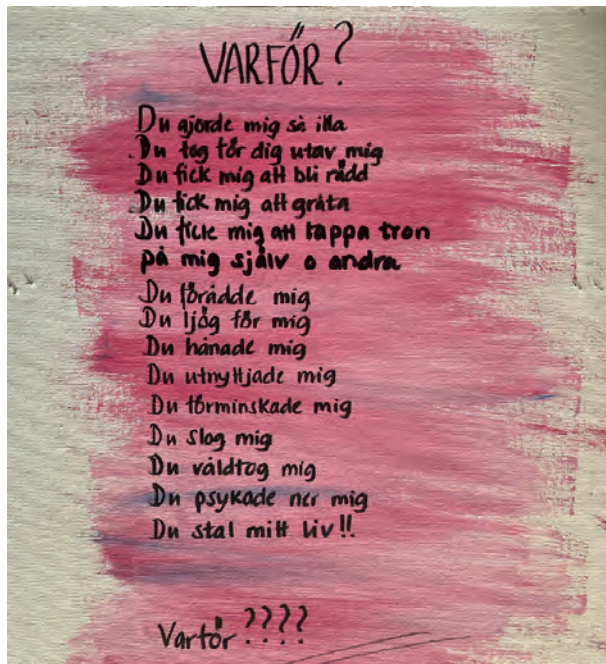 VARFÖR?
Du gjorde mig så illa
Du tog för dig utav mig
Du fick mig att bli rädd
Du fick mig att gråta
Du fick mig att tappa tron
på mig själv o andra
Du förådde mig
Du ljög för mig
Du hånade mig
Du utnyttjade mig
Du förminskade mig
Du slog mig
Du våldtog mig
Du psykade ner mig
Du stal mitt liv!!
Varför????